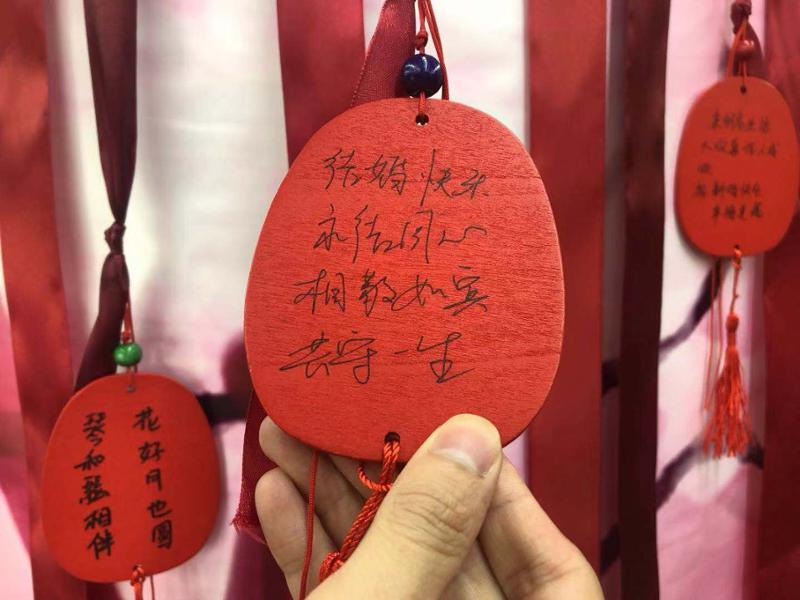 结婚快乐
永结同心
相敬如宾
共守一生
花好月也圆
琴和瑟相伴
幸福美满